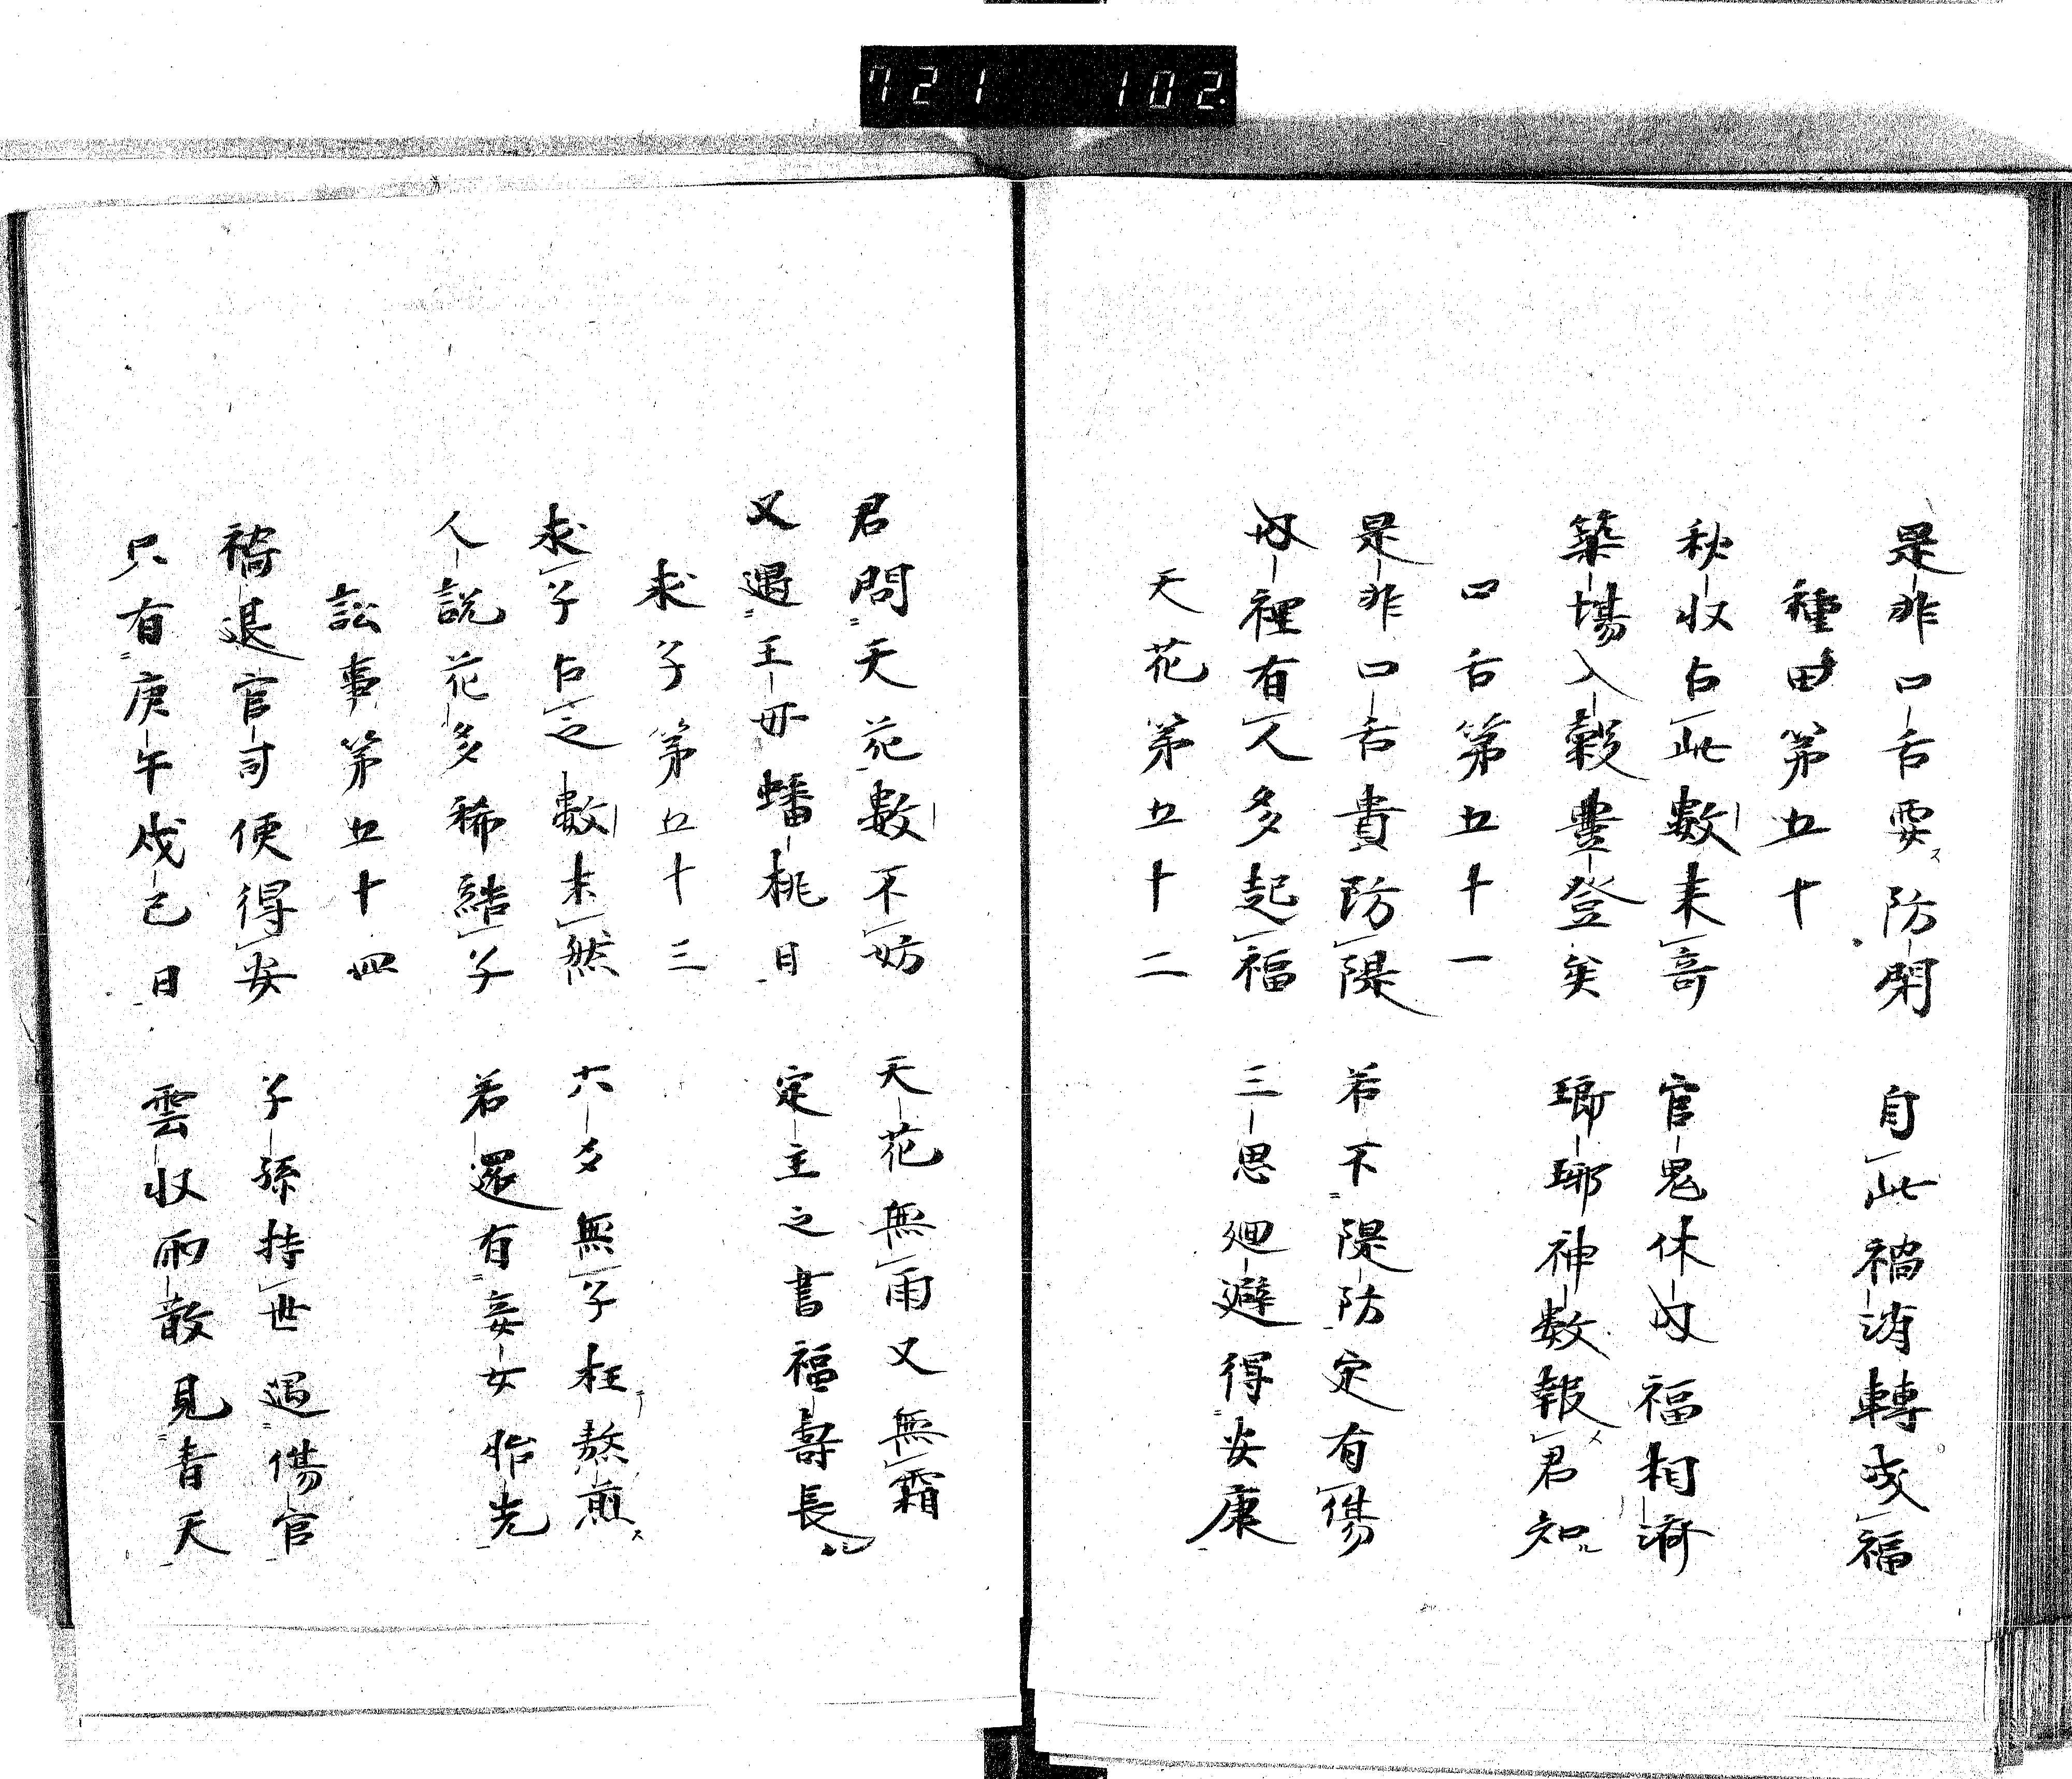 721 102.
是非口舌要ス防閑 自此禍消轉成福
種田第五十
秋收占此數来哥 官鬼休囚福相濟
築場入穀豊登矣 瑯琊神数報ス君知ル
口舌第五十一
是非口舌貴防隄 若不隄防定有傷
内裡有人多起福 三思廻避得安康
天花第五十二
君問天花數不妨 天花無雨又無霜
又遇王母蟠桃日 定主之書福壽長
求子第五十三
求子占之數未然 六爻無子枉テ熬煎ス
人説花多稀結子 若還有妾女胎先
訟事第五十四
禍退官司便得安 子孫持世遇傷官
只有庚午戊己日 雲収雨散見青天